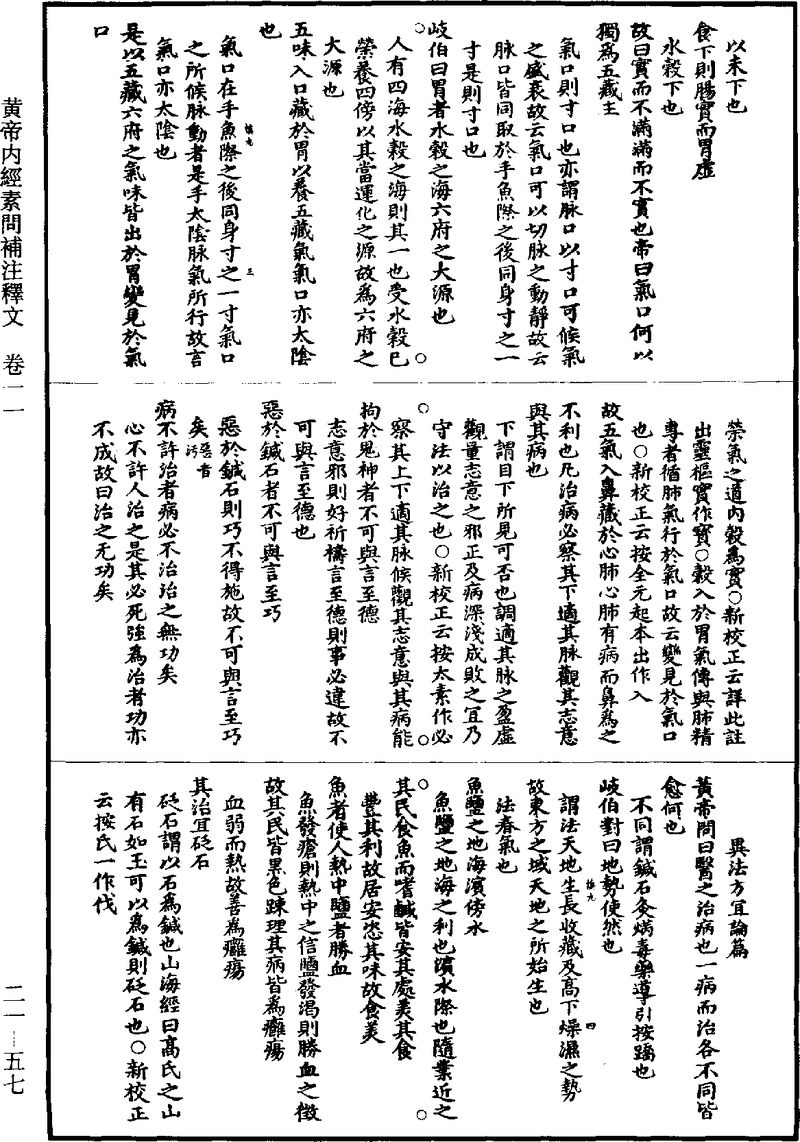 以未下也
食下則腸實而胃虛
水穀下也
故曰實而不滿滿而不實也帝曰氣口何以
獨爲五藏主
氣口則寸口也亦謂脉口以寸口可候氣
之盛衰故云氣口可以切脉之動靜故云
脉口皆同取於手魚際之後同身寸之一
寸是則寸口也
岐伯曰胃者水穀之海六府之大源也
人有四海水穀之海則其一也受水穀已
榮養四傍以其當運化之源故爲六府之
大源也
五味入口藏於胃以養五藏氣氣口亦太陰
也
氣口在手魚際之後同身寸之一寸氣口
之所候脉動者是手太陰脉氣所行故言
氣口亦太陰也
是以五藏六府之氣味皆出於胃變見於氣
口
榮氣之道內穀爲實○新校正云詳此註
出靈樞實作寶○穀入於胃氣傳與肺精
專者循肺氣行於氣口故云變見於氣口
也○新校正云按全元起本出作入
故五氣入鼻藏於心肺心肺有病而鼻爲之
不利也凡治病必察其下適其脉觀其志意
與其病也
下謂目下所見可否也調適其脉之盈虛
觀量志意之邪正及病深淺成敗之宜乃
守法以治之也○新校正云按太素作必
察其上下適其脉候觀其志意與其病能
拘於鬼神者不可與言至德
志意邪則好祈禱言至德則事必違故不
可與言至德也
惡於鍼石者不可與言至巧
惡於鍼石則巧不得施故不可與言至巧
矣惡音污
病不許治者病必不治治之無功矣
心不許人治之是其必死強爲治者功亦
不成故曰治之无功矣
異法方宜論篇
黃帝問曰醫之治病也一病而治各不同皆
愈何也
不同謂鍼石灸焫毒藥導引按蹻也
岐伯對曰地勢使然也
謂法天地生長收藏及高下燥濕之勢
故東方之域天地之所始生也
法春氣也
魚鹽之地海濱傍水
魚鹽之地海之利也濱水際也隨業近之
其民食魚而嗜鹹皆安其處美其食
豐其利故居安恣其味故食美
魚者使人熱中鹽者勝血
魚發瘡則熱中之信鹽發渴則勝血之徵
故其民皆黑色踈理其病皆爲癰瘍
血弱而熱故善爲癰瘍
其治宜砭石
砭石謂以石爲鍼也山海經曰高氏之山
有石如玉可以爲鍼則砭石也○新校正
云按氏一作伐
黄帝内經素問補注釋文 卷一一
二一—五七